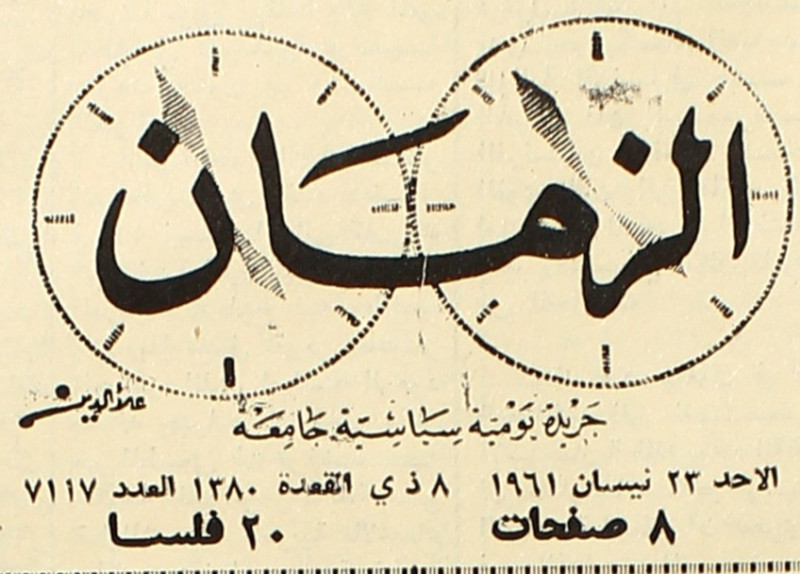 الزمان
علاءالدين
جَريدة يَوميّة سِيَاسِيّة جَامِعَة
الاحد ٢٣ نيسان ١٩٦١ ٨ ذي القعدة ١٣٨٠ العدد ٧١١٧
٨ صفحات ٢٠ فلسا